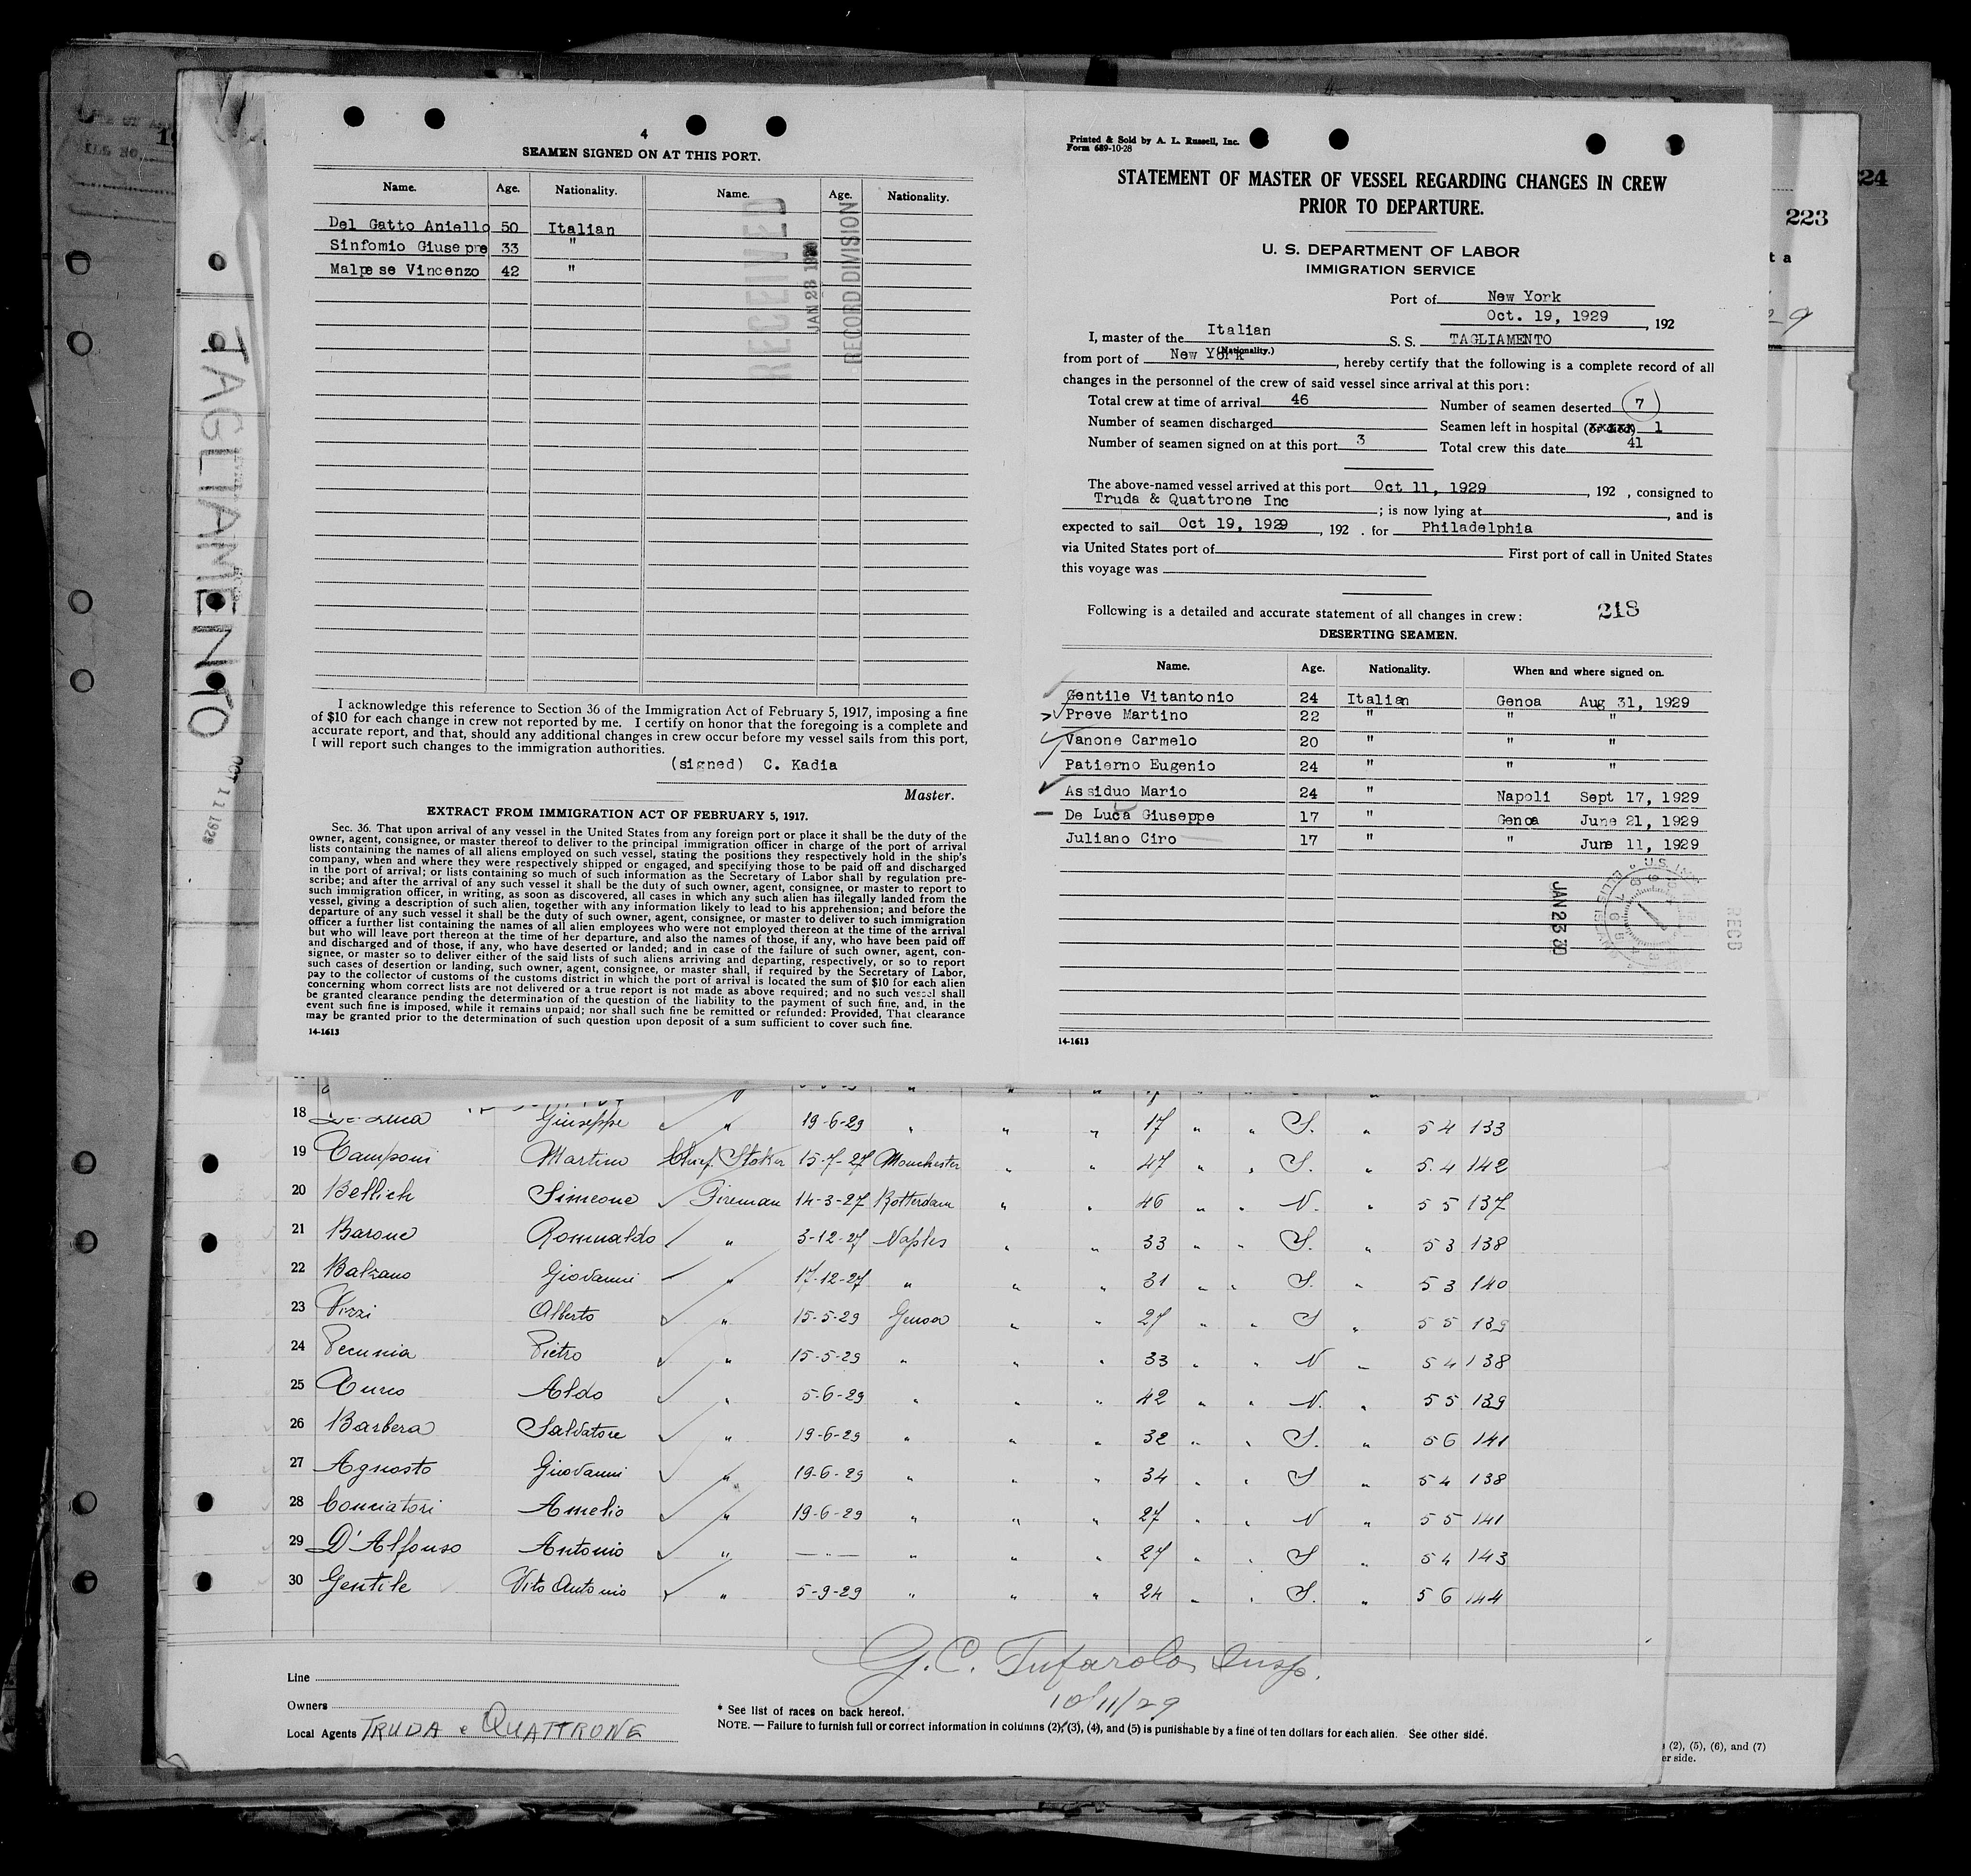 4
SEAMEN SIGNED ON AT THIS PORT.
Name. Age. Nationality. Name. Age. Nationality.
Del Gatto Aniello 50 Italian
Sinfomio Giusepre 33 "
Malpese Vincenzo 42 "
RECEIVED
JAN 23 19
RECORD DIVISION
I acknowledge this reference to Section 36 of the Immigration Act of February 5, 1917, imposing a fine
of $10 for each change in crew not reported by me. I certify on honor that the foregoing is a complete and
accurate report, and that, should any additional changes in crew occur before my vessel sails from this port,
I will report such changes to the immigration authorities.
(signed) C. Kadia
Master.
EXTRACT FROM IMMIGRATION ACT OF FEBRUARY 5, 1917.
Sec. 36. That upon arrival of any vessel in the United States from any foreign port or place it shall be the duty of the
owner, agent, consignee, or master thereof to deliver to the principal immigration officer in charge of the port of arrival
lists containing the names of all aliens employed on such vessel, stating the positions they respectively hold in the ship's
company, when and where they were respectively shipped or engaged, and specifying those to be paid off and discharged
in the port of arrival; or lists containing so much of such information as the Secretary of Labor shall by regulation pre-
scribe; and after the arrival of any such vessel it shall be the duty of such owner, agent, consignee, or master to report to
such immigration officer, in writing, as soon as discovered, all cases in which any such alien has illegally landed from the
vessel, giving a description of such alien, together with any information likely to lead to his apprehension; and before the
departure of any such vessel it shall be the duty of such owner, agent, consignee, or master to deliver to such immigration
officer a further list containing the names of all alien employees who were not employed thereon at the time of the arrival
but who will leave port thereon at the time of her departure, and also the names of those, if any, who have been paid off
and discharged and of those, if any, who have deserted or landed; and in case of the failure of such owner, agent, con-
signee, or master so to deliver either of the said lists of such aliens arriving and departing, respectively, or so to report
such cases of desertion or landing, such owner, agent, consignee, or master shall, if required by the Secretary of Labor,
pay to the collector of customs of the customs district in which the port of arrival is located the sum of $10 for each alien
concerning whom correct lists are not delivered or a true report is not made as above required; and no such vessel shall
be granted clearance pending the determination of the question of the liability to the payment of such fine, and, in the
event such fine is imposed, while it remains unpaid; nor shall such fine be remitted or refunded: Provided, That clearance
may be granted prior to the determination of such question upon deposit of a sum sufficient to cover such fine.
14-1613
Printed & Sold by A. L. Russell, Inc.
Form 689-10-28
STATEMENT OF MASTER OF VESSEL REGARDING CHANGES IN CREW
PRIOR TO DEPARTURE.
U. S. DEPARTMENT OF LABOR
IMMIGRATION SERVICE
Port of New York
Oct. 19, 1929, 192
I, master of the Italian S. S. TAGLIAMENTO
(Nationality.)
from port of New York, hereby certify that the following is a complete record of all
changes in the personnel of the crew of said vessel since arrival at this port:
Total crew at time of arrival 46 Number of seamen deserted 7
Number of seamen discharged Seamen left in hospital (or died) 1
Number of seamen signed on at this port 3 Total crew this date 41
The above-named vessel arrived at this port Oct 11, 1929, 192 , consigned to
Truda & Quattrone Inc ; is now lying at , and is
expected to sail Oct 19, 1929, 192 . for Philadelphia
via United States port of First port of call in United States
this voyage was
Following is a detailed and accurate statement of all changes in crew: 218
DESERTING SEAMEN.
Name. Age. Nationality. When and where signed on.
Gentile Vitantonio 24 Italian Genoa Aug 31, 1929
Preve Martino 22 " " "
Vanone Carmelo 20 " " "
Patierno Eugenio 24 " " "
Assiduo Mario 24 " Napoli Sept 17, 1929
De Luca Giuseppe 17 " Genoa June 21, 1929
Juliano Ciro 17 " " June 11, 1929
JAN 23 30
RECD
14-1613
TAGLIAMENTO
OCT 11 1929
24
223
18 De Luca Giuseppe " 19-6-29 " " " 17 " " S. " 5 4 133
19 Camponi Martino Chief Stoker 15-7-27 Manchester " " 47 " " S. " 5 4 142
20 Bellich Simeone Fireman 14-3-27 Rotterdam " " 46 " " N. " 5 5 137
21 Barone Romualdo " 3-12-27 Naples " " 33 " " S. " 5 3 138
22 Balzano Giovanni " 17-12-27 " " " 31 " " S. " 5 3 140
23 Vizzi Alberto " 15-5-29 Genoa " " 27 " " S " 5 5 139
24 Pecunia Pietro " 15-5-29 " " " 33 " " N " 5 4 138
25 Cuneo Aldo " 5-6-29 " " " 42 " " N. " 5 5 139
26 Barbera Salvatore " 19-6-29 " " " 32 " " S. " 5 6 141
27 Agnosto Giovanni " 19-6-29 " " " 34 " " S " 5 4 138
28 Conciatori Amelio " 19-6-29 " " " 27 " " N " 5 5 141
29 D'Alfonso Antonio " — " — " " " 27 " " S " 5 4 143
30 Gentile Vito Antonio " 5-9-29 " " " 24 " " S. " 5 6 144
G. C. Tufarolo Insp.
10/11/29
Line
Owners
Local Agents TRUDA e QUATTRONE
* See list of races on back hereof.
NOTE. — Failure to furnish full or correct information in columns (2), (3), (4), and (5) is punishable by a fine of ten dollars for each alien. See other side.
(2), (5), (6), and (7)
er side.